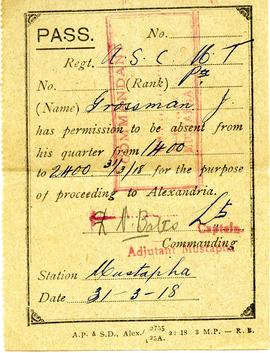 PASS. No.
Regt. A.S.C M T
No. (Rank) Pte
(Name) Grossman J.
has permission to be absent from
his quarter from 1400
to 2400 31/3/18 for the purpose
of proceeding to Alexandria.
Captain,
Commanding
Adjutant Mustapha
Station Mustapha
Date 31-3-18
A.P. & S.D., Alex./2765/25A. 2: 18 3 M.P.— R. B.